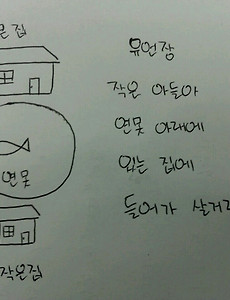 은집
연못
작은집
유언장
작은 아들아
연못 아래에
있는 집에
들어가 살거라